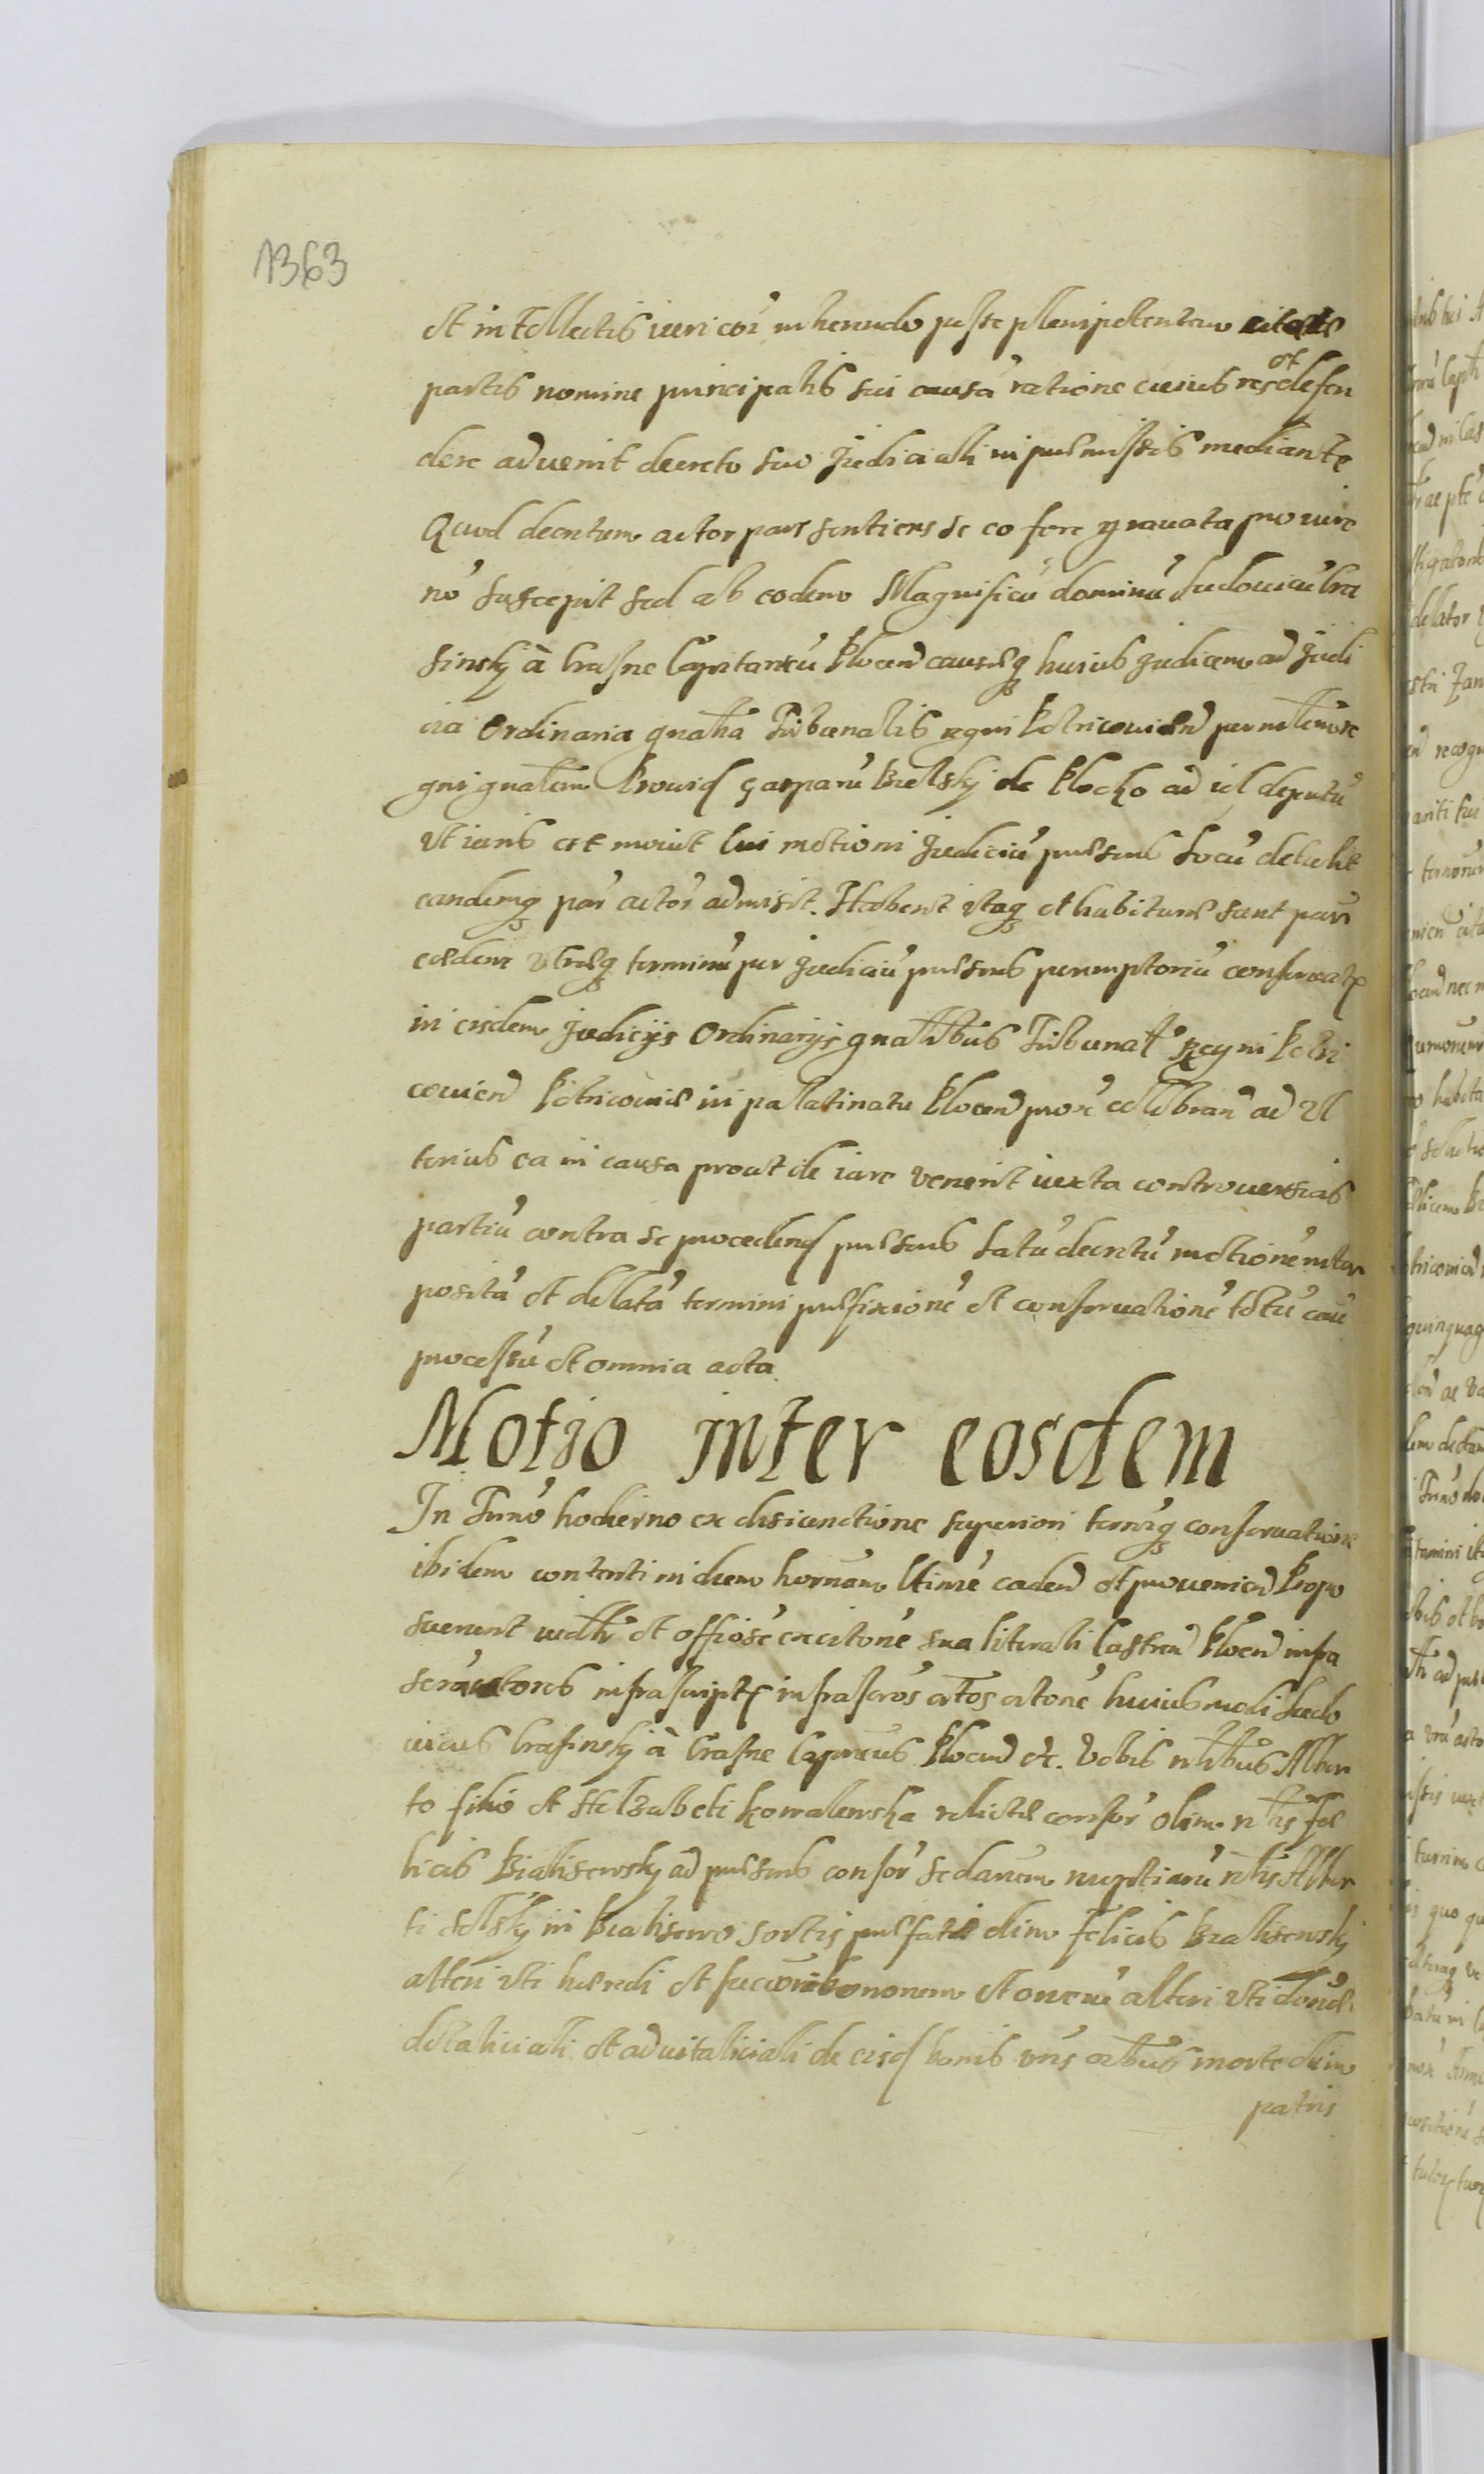 1363
et intellectis iuri cor inherendo passe plenipotentem citatae
partis nomine principalis sui causā ratione cuius res et defen
dere advenit decreto suo Judiciali in praemissis mediante
Quod decretum actor pars sentiens se eo fore gravata pro iure
nō suscepit sed ab eodem Magnificū dominū Ludovicū Cra
sinsky à Crasne Capitaneū Plocen causaeq huius Judicem ad Judi
cia Ordinaria gnalia Tribunalis regni Petricovien per mtrum re
gni gnalem Provid Gasparū Bielsky de Plocko ad id deputū
ut iuris est movit Cui motioni Judiciū praesens locū detulit
eandemq par actor admisit. Habent itaq et habiturae sunt partes
eaedem utraeq terminū per Judiciū praesens peremptoriū conservatū
in eisdem Judicijs Ordinarijs gnalibus Tribunal Regni Petri
covien Petricoviae in palatinatu Plocen prox celebran ad ul
terius ea in causa prout de iure venerit iuxta controversias
partiū contra se procedend praesens latū decretū motionē inter
positā et delatā termini praefixionē et conservationē totū cau
processū et omnia acta
Motio inter eosdem
In Trmō hodierno ex disiunctione superiori terniq conservatione
ibidem contenti in diem hornam ltimē caden et provenien Propo
suerunt iudtr et offiosē excitonē sua literali Castren Plocen infra
infrascript infrascros actos actonē huiusmodi Ludo
vicus Crasinsky à Crasne Capneus Plocen etc. Vobis nlibus Alber
to filio et Helzabeti Kowalewska relictae consor olim nlis Fae
licis Bialisewsky ad praesens consor sedarum nuptiarū nlis Alber
ti in Bialisewo sortis praefatae olim Felicis Bialisewsky
alteri uti haeredi et succōri bononem et onerū alteri uti
dotaliciali et advitaliciali de eisd bonis vris actbus morte olim
patris